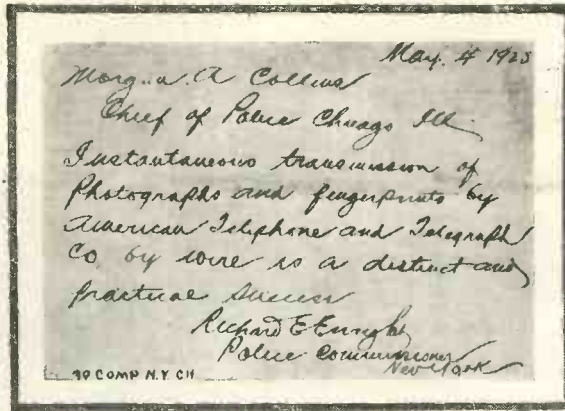 May. 4 1925
Morgan A Collins
Chief of Police Chicago Ill
Instantaneous transmission of
Photographs and fingerprints by
American Telephone and Telegraph
Co, by wire is a distinct and
practical success
Richard E Enright
Police Commissioner
New York
70 COMP N.Y. CH